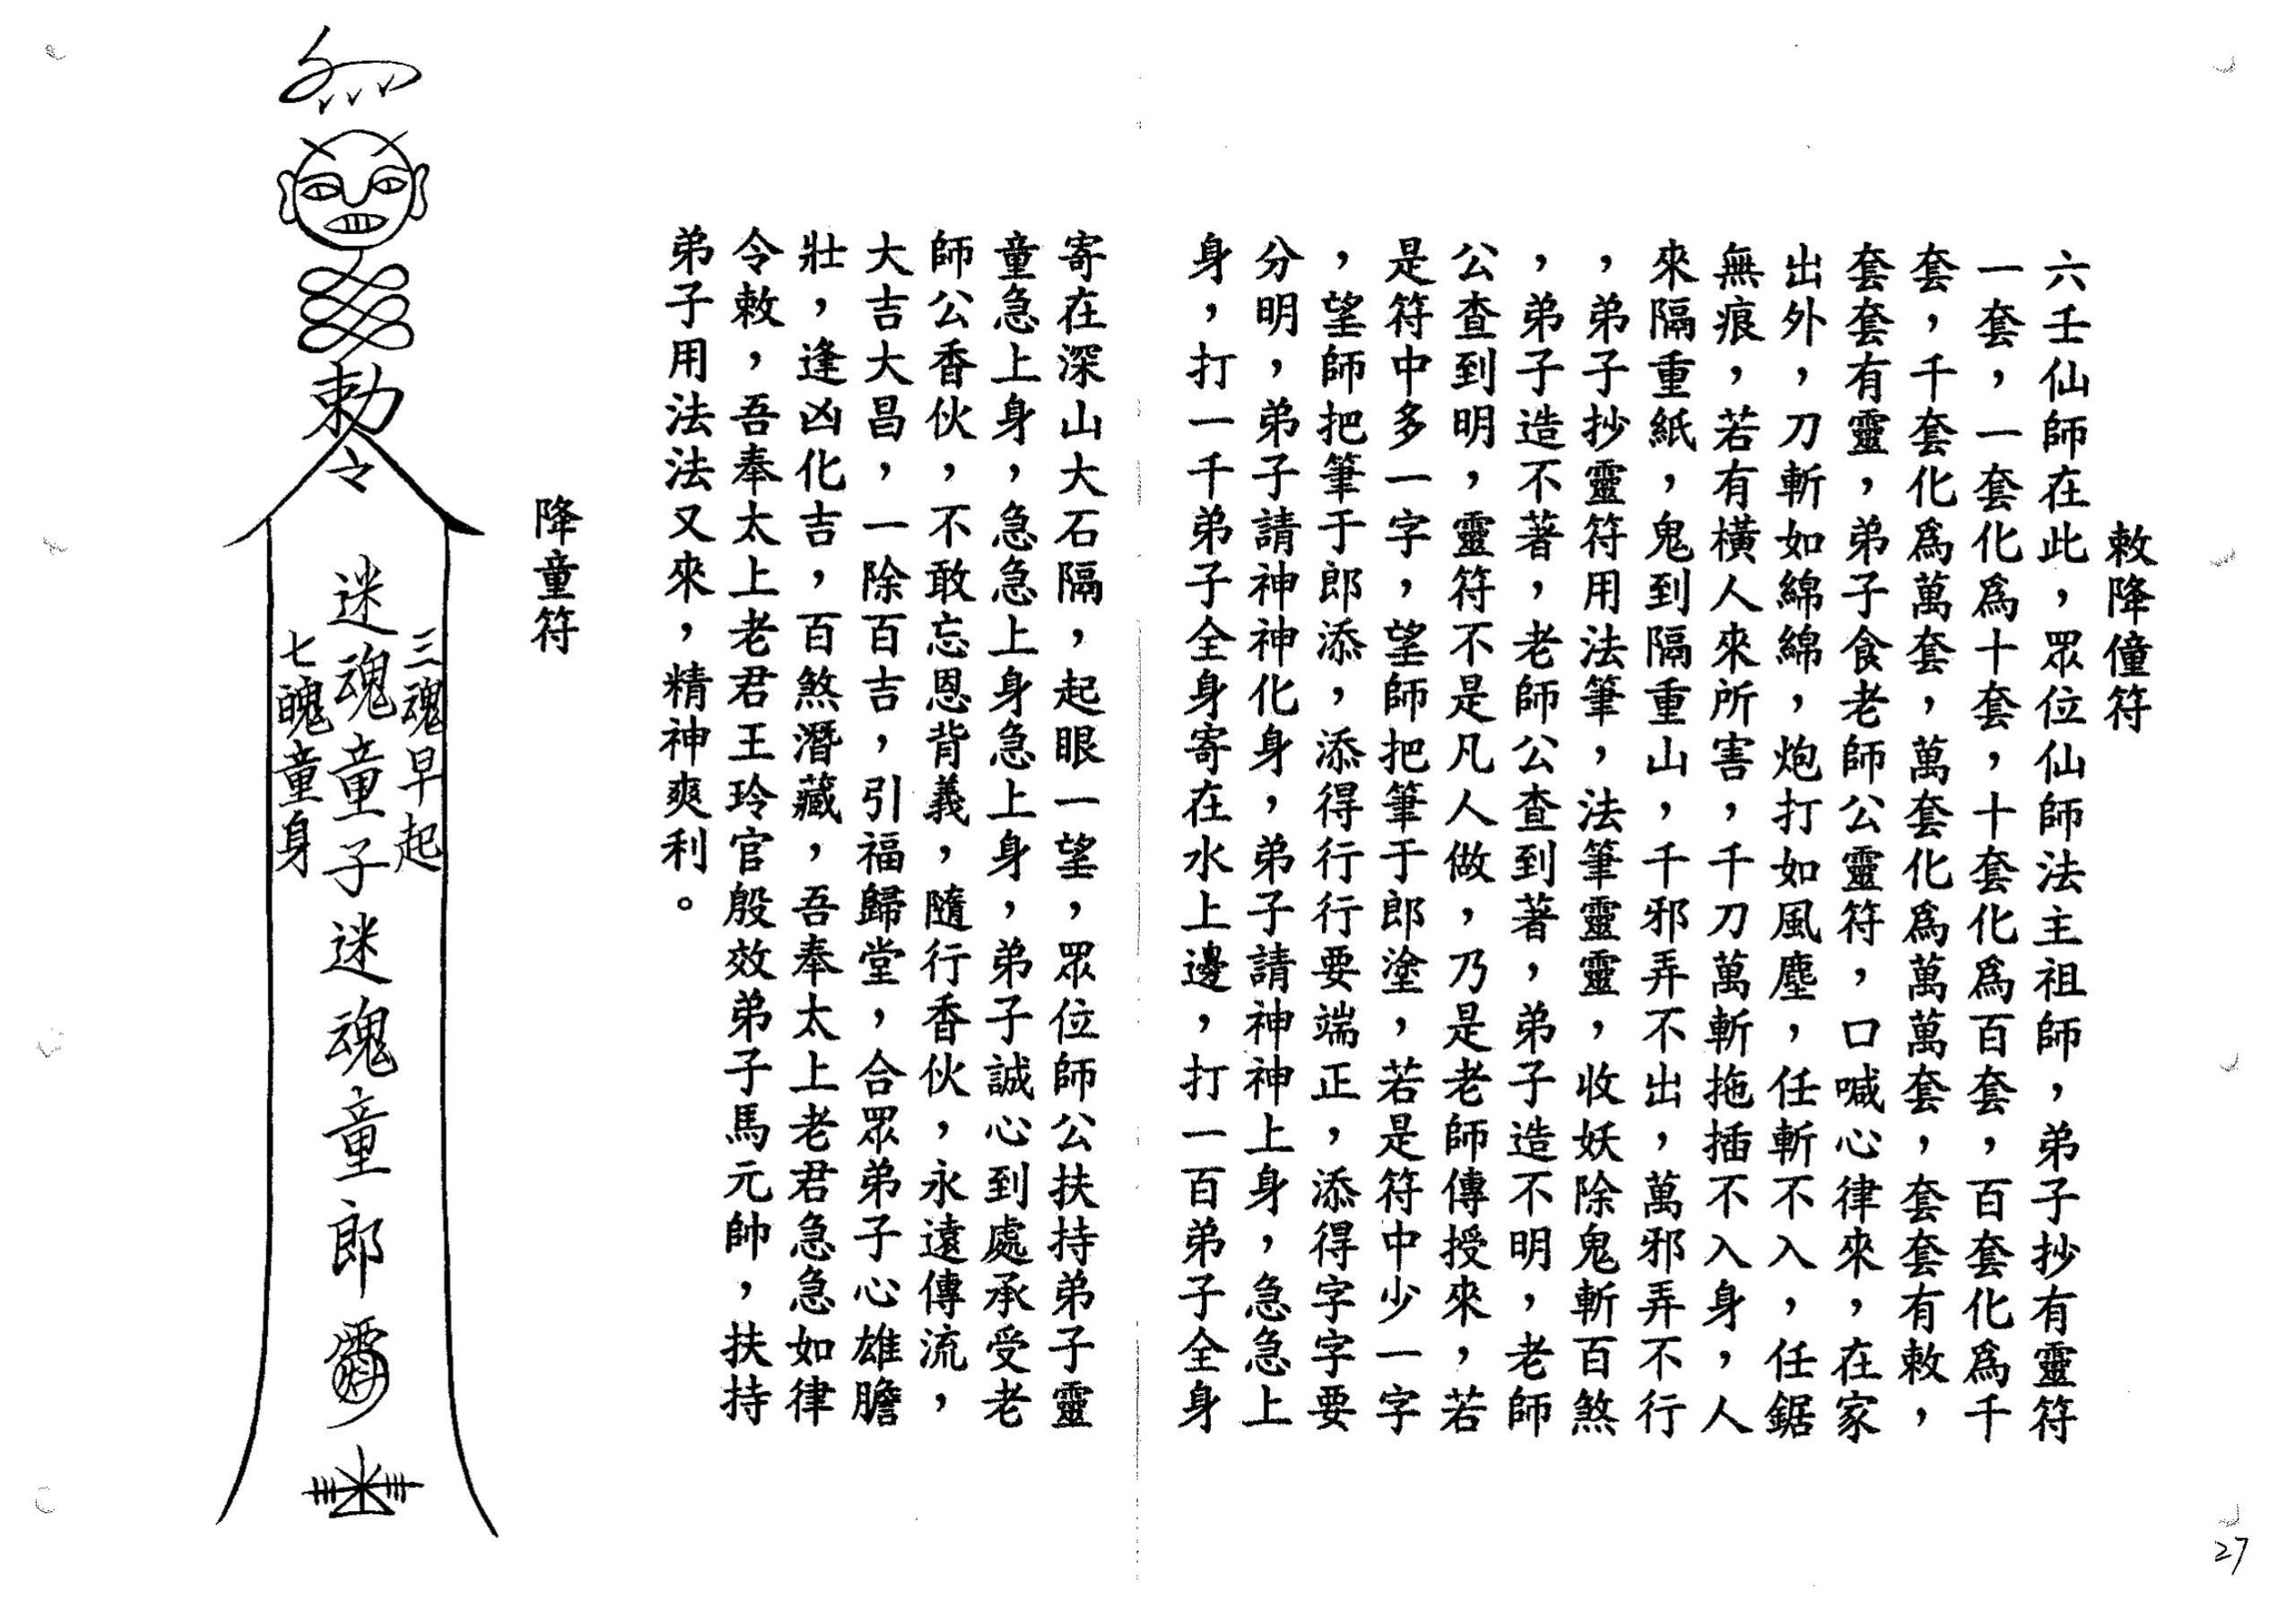 敕降僮符
六壬仙師在此，眾位仙師法主祖師，弟子抄有靈符
一套，一套化爲十套，十套化爲百套，百套化爲千
套，千套化爲萬套，萬套化爲萬萬套，套套有敕，
套套有靈，弟子食老師公靈符，口喊心律來，在家
出外，刀斬如綿綿，炮打如風塵，任斬不入，任鋸
無痕，若有橫人來所害，千刀萬斬拖插不入身，人
來隔重紙，鬼到隔重山，千邪弄不出，萬邪弄不行
，弟子抄靈符用法筆，法筆靈靈，收妖除鬼斬百煞
，弟子造不著，老師公查到著，弟子造不明，老師
公查到明，靈符不是凡人做，乃是老師傳授來，若
是符中多一字，望師把筆于郎塗，若是符中少一字
，望師把筆于郎添，添得行行要端正，添得字字要
分明，弟子請神神化身，弟子請神神上身，急急上
身，打一千弟子全身寄在水上邊，打一百弟子全身
寄在深山大石隔，起眼一望，眾位師公扶持弟子靈
童急上身，急急上身急上身，弟子誠心到處承受老
師公香伙，不敢忘恩背義，隨行香伙，永遠傳流，
大吉大昌，一除百吉，引福歸堂，合眾弟子心雄膽
壯，逢凶化吉，百煞潛藏，吾奉太上老君急急如律
令敕，吾奉太上老君王玲官殷效弟子馬元帥，扶持
弟子用法法又來，精神爽利。
降童符
敕
令
三魂早起
迷魂童子迷魂童郎
七魄童身
27